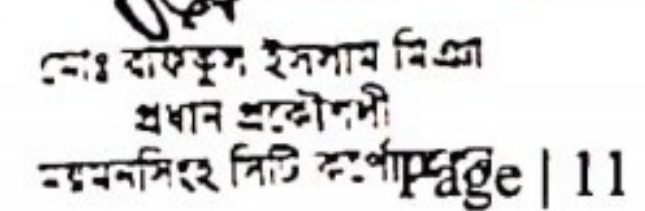 মোঃ রফিকুল ইসলাম মিঞা
প্রধান প্রকৌশলী
ময়মনসিংহ সিটি Page | 11